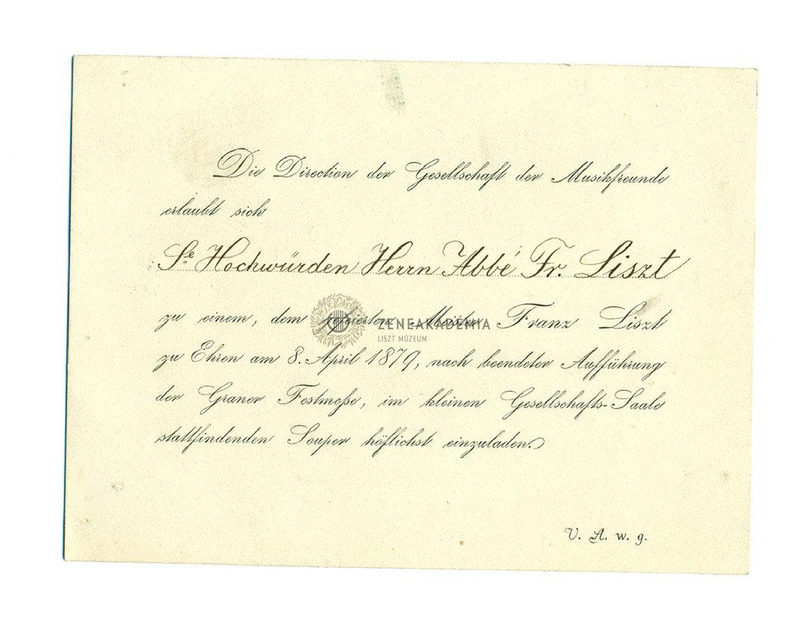 Die Direction der Gesellschaft der Musikfreunde
erlaubt sich
Se Hochwürden Herrn Abbé Fr. Liszt
zu einem, dem gefeierten Meister Franz Liszt
zu Ehren am 8. April 1879, nach beendeter Aufführung
der Graner Festmeße, im kleinen Gesellschafts-Saale
stattfindenden Souper höflichst einzuladen.
U. A. w. g.
ZENEAKADÉMIA
LISZT MÚZEUM